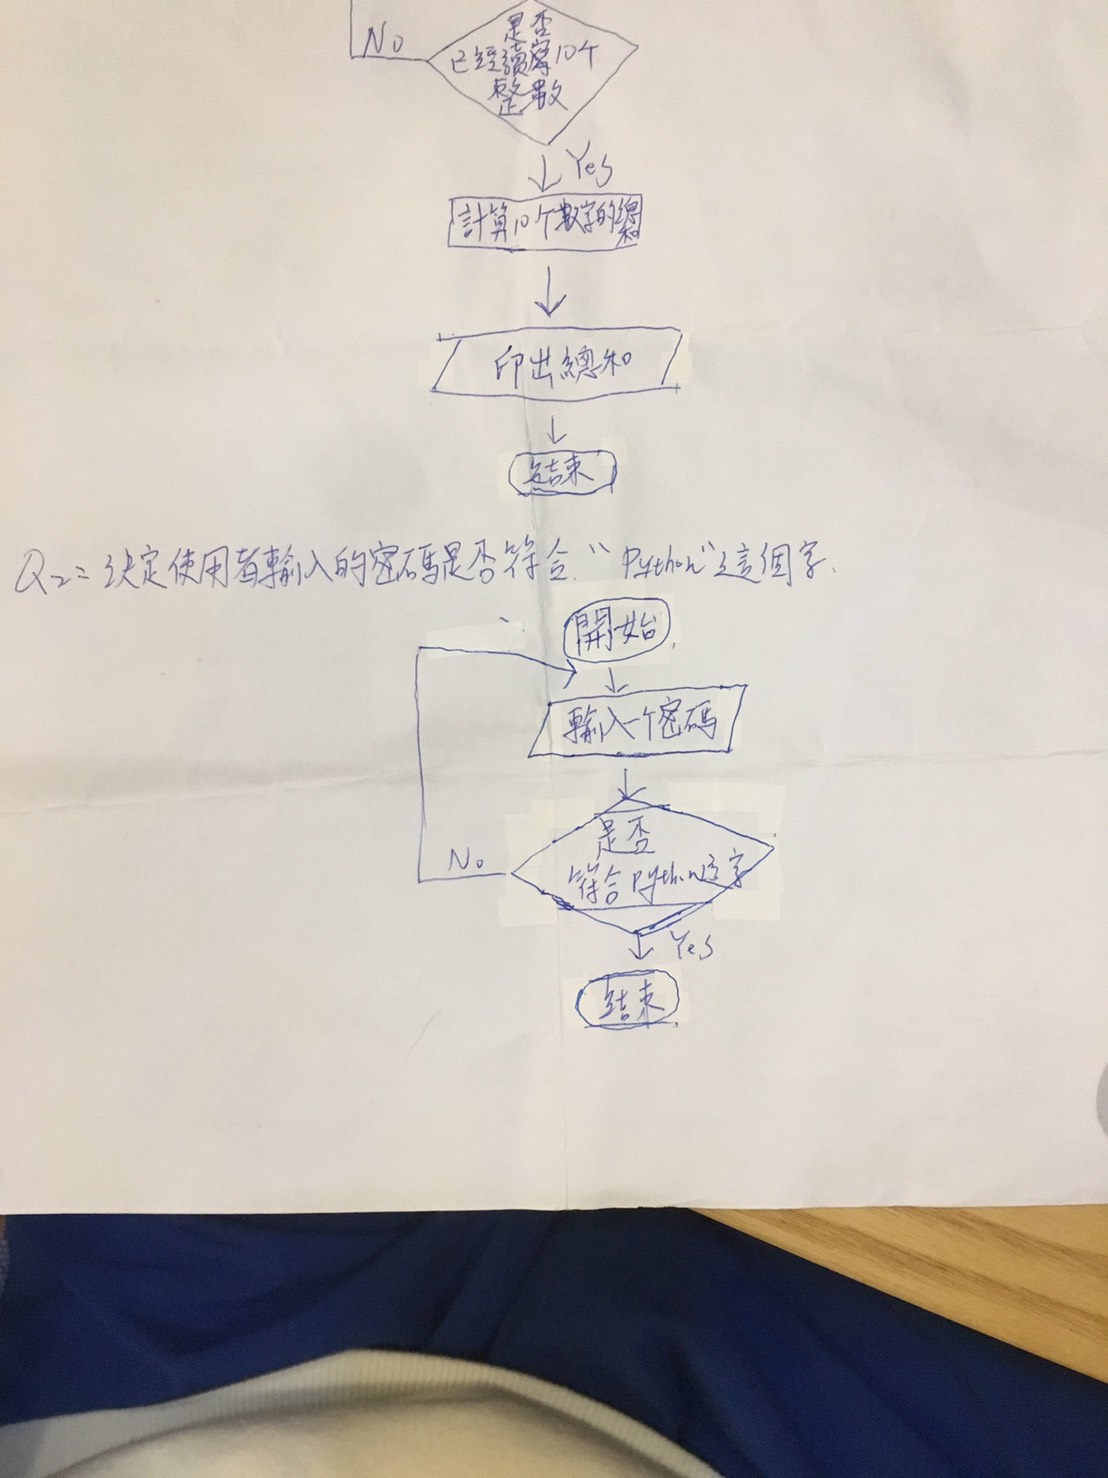 是否
No
已經讀寫10个
整數
Yes
計算10个數字的總和
印出總和
結束
Q2=決定使用者輸入的密碼是否符合"Python"這個字.
開始
輸入一个密碼
是否
No
符合Python這字
Yes
結束